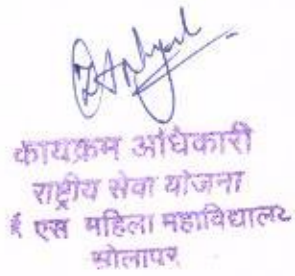 कायक्रम अधिकारी
राष्ट्रीय सेवा योजना
एस महिला महाविद्यालय
सोलापर